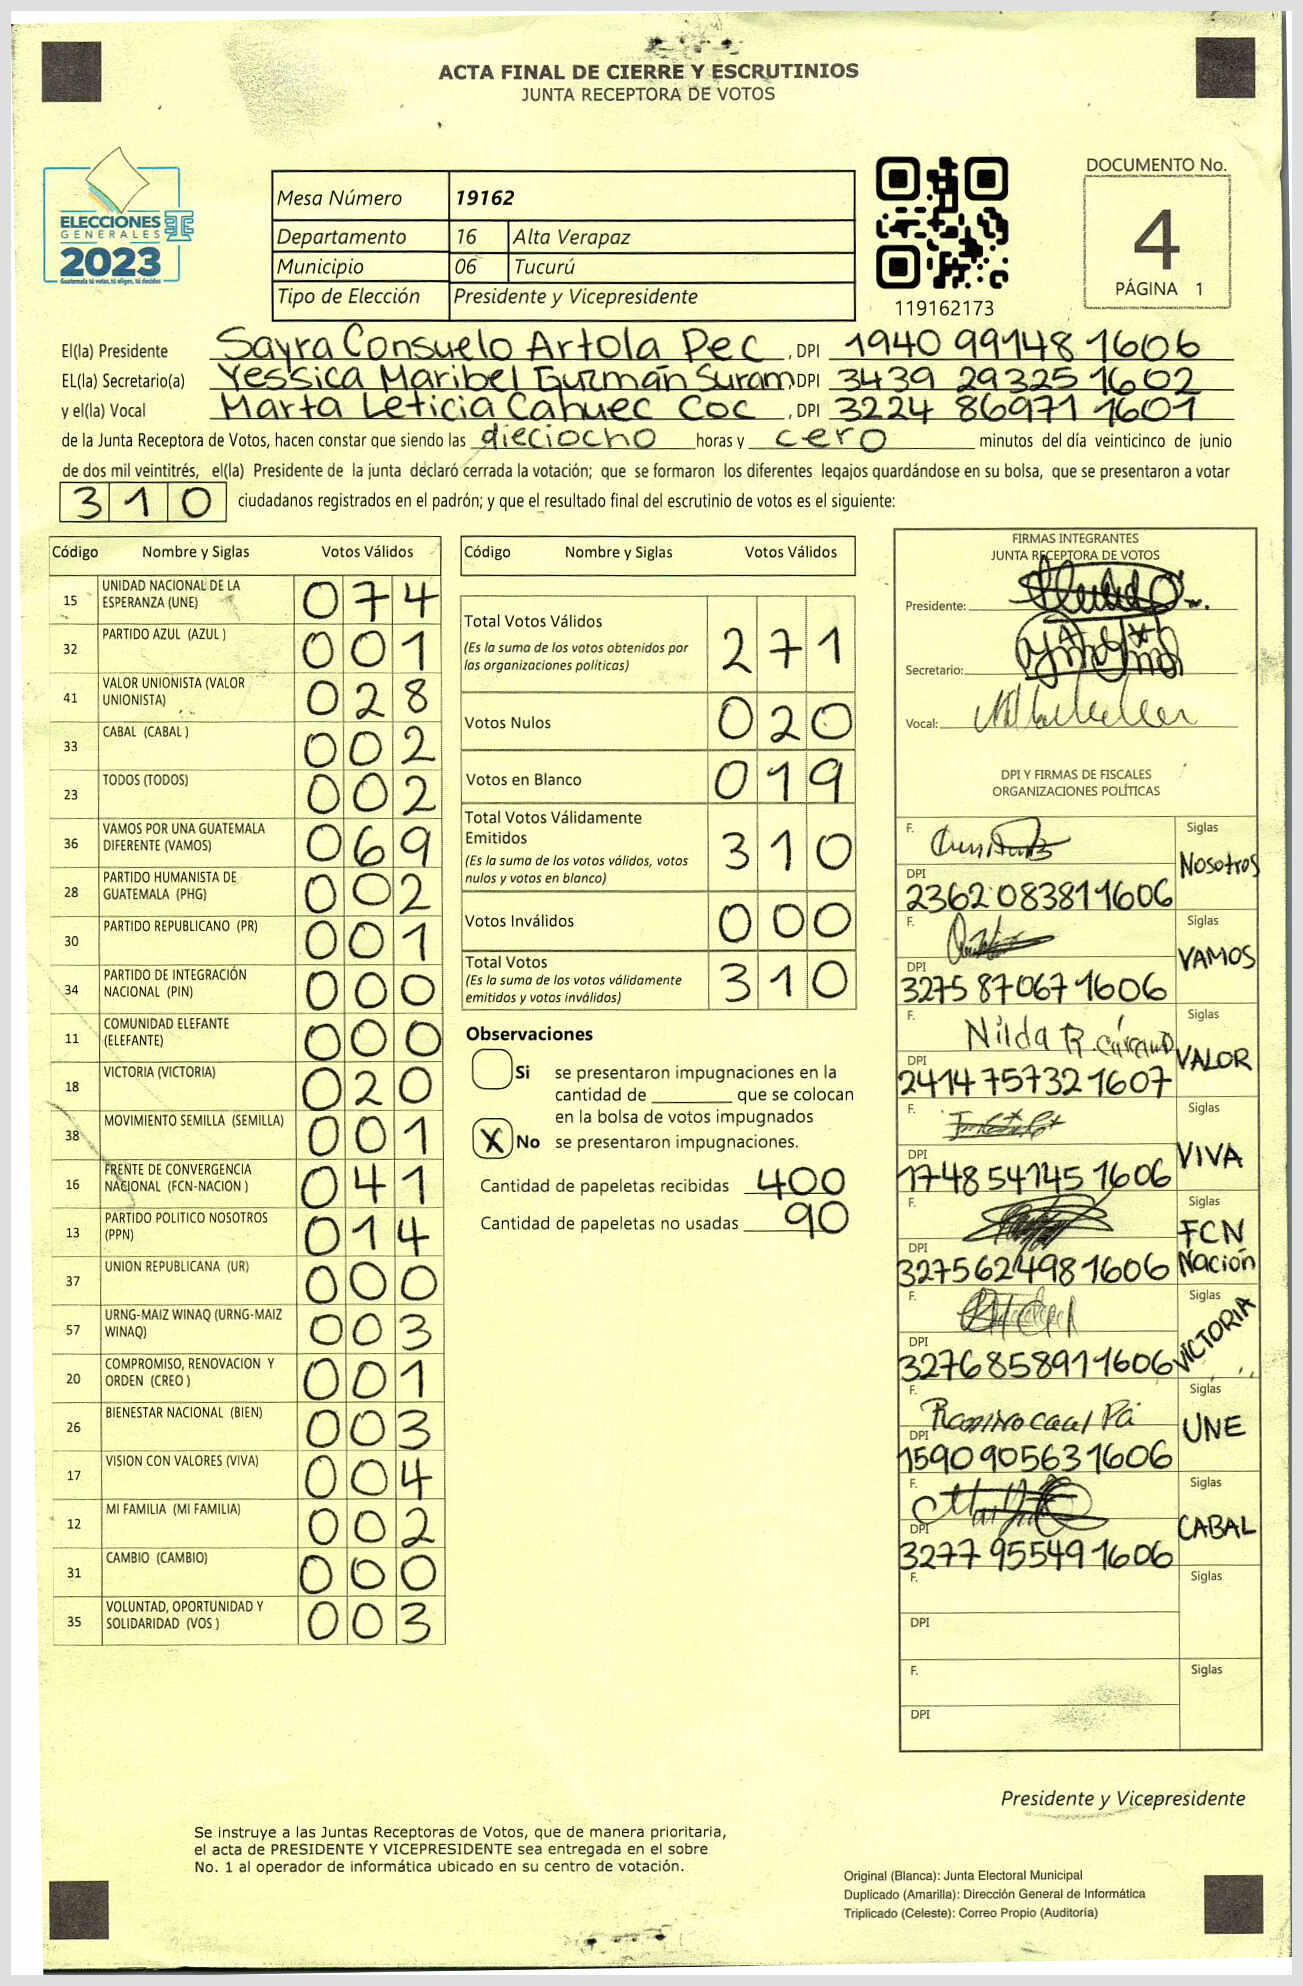 ACTA FINAL DE CIERRE Y ESCRUTINIOS
JUNTA RECEPTORA DE VOTOS
ELECCIONES
GENERALES
2023
Guatemala tú votas, tú eliges, tú decides
Mesa Número 19162
Departamento 16 Alta Verapaz
Municipio 06 Tucurú
Tipo de Elección Presidente y Vicepresidente
119162173
DOCUMENTO No.
4
PÁGINA 1
El(la) Presidente Sayra Consuelo Artola Pec , DPI 1940 99148 1606
EL(la) Secretario(a) Yessica Maribel Guzmán Suram DPI 3439 29325 1602
y el(la) Vocal Marta Leticia Cahuec Coc , DPI 3224 86971 1601
de la Junta Receptora de Votos, hacen constar que siendo las dieciocho horas y cero minutos del día veinticinco de junio
de dos mil veintitrés, el(la) Presidente de la junta declaró cerrada la votación; que se formaron los diferentes legajos guardándose en su bolsa, que se presentaron a votar
310 ciudadanos registrados en el padrón; y que el resultado final del escrutinio de votos es el siguiente:
Código Nombre y Siglas Votos Válidos
15 UNIDAD NACIONAL DE LA ESPERANZA (UNE) 074
32 PARTIDO AZUL (AZUL ) 001
41 VALOR UNIONISTA (VALOR UNIONISTA) 028
33 CABAL (CABAL ) 002
23 TODOS (TODOS) 002
36 VAMOS POR UNA GUATEMALA DIFERENTE (VAMOS) 069
28 PARTIDO HUMANISTA DE GUATEMALA (PHG) 002
30 PARTIDO REPUBLICANO (PR) 001
34 PARTIDO DE INTEGRACIÓN NACIONAL (PIN) 000
11 COMUNIDAD ELEFANTE (ELEFANTE) 000
18 VICTORIA (VICTORIA) 020
38 MOVIMIENTO SEMILLA (SEMILLA) 001
16 FRENTE DE CONVERGENCIA NACIONAL (FCN-NACION ) 041
13 PARTIDO POLITICO NOSOTROS (PPN) 014
37 UNION REPUBLICANA (UR) 000
57 URNG-MAIZ WINAQ (URNG-MAIZ WINAQ) 003
20 COMPROMISO, RENOVACION Y ORDEN (CREO ) 001
26 BIENESTAR NACIONAL (BIEN) 003
17 VISION CON VALORES (VIVA) 004
12 MI FAMILIA (MI FAMILIA) 002
31 CAMBIO (CAMBIO) 000
35 VOLUNTAD, OPORTUNIDAD Y SOLIDARIDAD (VOS ) 003
Código Nombre y Siglas Votos Válidos
Total Votos Válidos 271
(Es la suma de los votos obtenidos por
las organizaciones políticas)
Votos Nulos 020
Votos en Blanco 019
Total Votos Válidamente
Emitidos 310
(Es la suma de los votos válidos, votos
nulos y votos en blanco)
Votos Inválidos 000
Total Votos 310
(Es la suma de los votos válidamente
emitidos y votos inválidos)
Observaciones
Si se presentaron impugnaciones en la
cantidad de ________ que se colocan
en la bolsa de votos impugnados
X No se presentaron impugnaciones.
Cantidad de papeletas recibidas 400
Cantidad de papeletas no usadas 90
FIRMAS INTEGRANTES
JUNTA RECEPTORA DE VOTOS
Presidente:
Secretario:
Vocal:
DPI Y FIRMAS DE FISCALES
ORGANIZACIONES POLÍTICAS
F. Siglas Nosotros
DPI 2362 08381 1606
F. Siglas VAMOS
DPI 3275 87067 1606
F. Nilda R. Siglas VALOR
DPI 2414 75732 1607
F. Siglas VIVA
DPI 1748 54145 1606
F. Siglas FCN Nación
DPI 3275 62498 1606
F. Siglas VICTORIA
DPI 3276 85891 1606
F. Siglas UNE
DPI 1590 90563 1606
F. Siglas CABAL
DPI 3277 95549 1606
F. Siglas
DPI
F. Siglas
DPI
Presidente y Vicepresidente
Se instruye a las Juntas Receptoras de Votos, que de manera prioritaria,
el acta de PRESIDENTE Y VICEPRESIDENTE sea entregada en el sobre
No. 1 al operador de informática ubicado en su centro de votación.
Original (Blanca): Junta Electoral Municipal
Duplicado (Amarilla): Dirección General de Informática
Triplicado (Celeste): Correo Propio (Auditoría)